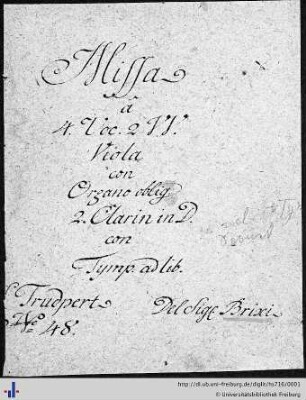 Missa
à
4. Voc. 2 VV.
Viola
con
Organo oblig
2. Clarin in D.
con
Tymp. ad lib.
Trudpert
Del Sigr Brixi
No 48
http://dl.ub.uni-freiburg.de/diglit/hs716/0001
© Universitätsbibliothek Freiburg